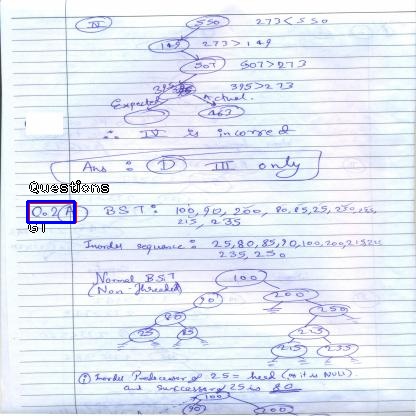 IV 550 273 < 550
149 273 > 149
507 507 > 273
395 395 > 273
Expected Actual.
463
∴ IV is incorrect
Ans : D III only
Questions
Q.2 (A) BST : 100, 90, 200, 80, 85, 25, 250,
215, 235
G1
Inorder sequence : 25, 80, 85, 90, 100, 200, 215
235, 250
Normal BST
(Non-Threaded)
100
90 200
80 250
25 85 225
215 235
(i) Inorder Predecessor of 25 = head (as it is NULL).
and successor of 25 is 80
100
90 200